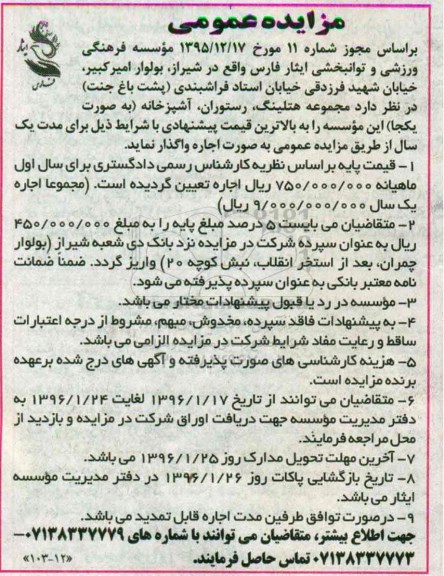 مزایده عمومی
براساس مجوز شماره ۱۱ مورخ ۱۳۹۵/۱۲/۱۷ مؤسسه فرهنگی
ورزشی و توانبخشی ایثار فارس واقع در شیراز، بولوار امیرکبیر،
خیابان شهید فرزدقی خیابان استاد فراشبندی (پشت باغ جنت)
در نظر دارد مجموعه هتلینگ، رستوران، آشپزخانه (به صورت
یکجا) این مؤسسه را به بالاترین قیمت پیشنهادی با شرایط ذیل برای مدت یک
سال از طریق مزایده عمومی به صورت اجاره واگذار نماید.
۱- قیمت پایه براساس نظریه کارشناس رسمی دادگستری برای سال اول
ماهیانه ۷۵۰/۰۰۰/۰۰۰ ریال اجاره تعیین گردیده است. (مجموعا اجاره
یک سال ۹/۰۰۰/۰۰۰/۰۰۰ ریال)
۲- متقاضیان می بایست ۵ درصد مبلغ پایه را به مبلغ ۴۵۰/۰۰۰/۰۰۰
ریال به عنوان سپرده شرکت در مزایده نزد بانک دی شعبه شیراز (بولوار
چمران، بعد از استخر انقلاب، نبش کوچه ۲۰) واریز گردد. ضمناً ضمانت
نامه معتبر بانکی به عنوان سپرده پذیرفته می شود.
۳- مؤسسه در رد یا قبول پیشنهادات مختار می باشد.
۴- به پیشنهادات فاقد سپرده، مخدوش، مبهم، مشروط از درجه اعتبارات
ساقط و رعایت مفاد شرایط شرکت در مزایده الزامی می باشد.
۵- هزینه کارشناسی های صورت پذیرفته و آگهی های درج شده برعهده
برنده مزایده است.
۶- متقاضیان می توانند از تاریخ ۱۳۹۶/۱/۱۷ لغایت ۱۳۹۶/۱/۲۴ به
دفتر مدیریت مؤسسه جهت دریافت اوراق شرکت در مزایده و بازدید از
محل مراجعه فرمایند.
۷- آخرین مهلت تحویل مدارک روز ۱۳۹۶/۱/۲۵ می باشد.
۸- تاریخ بازگشایی پاکات روز ۱۳۹۶/۱/۲۶ در دفتر مدیریت مؤسسه
ایثار می باشد.
۹- درصورت توافق طرفین مدت اجاره قابل تمدید می باشد.
جهت اطلاع بیشتر، متقاضیان می توانند با شماره های ۰۷۱۳۸۳۳۷۷۷۹-
۰۷۱۳۸۳۳۷۷۷۳ تماس حاصل فرمایند.
«۱۰۳-۱۲»